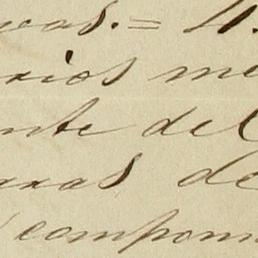 vas. = 11.
rios me
ente del
aras de
compon